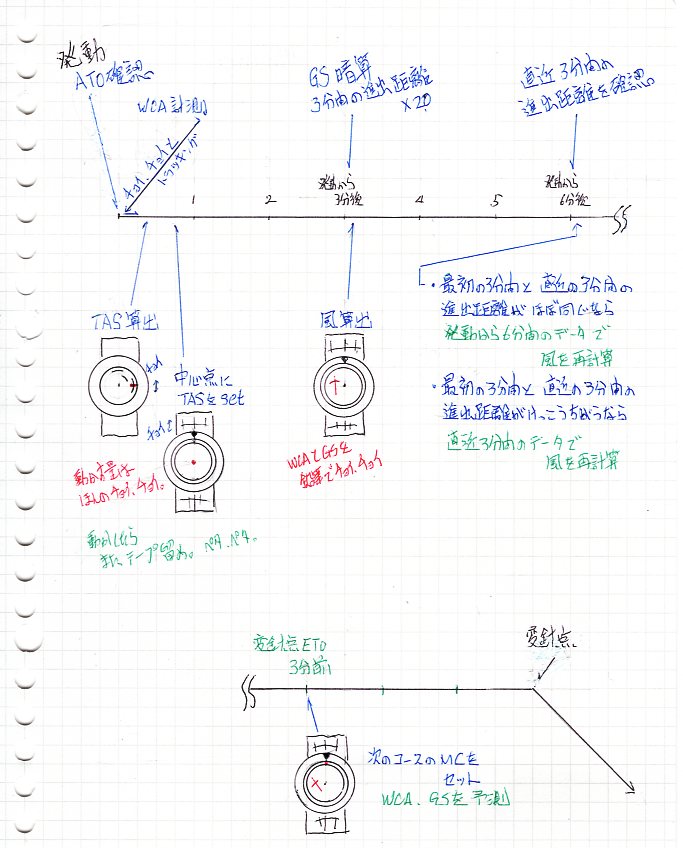 発動
ATO確認
WCA計測
チョイ、チョイと
トラッキング
GS暗算
3分間の進出距離
×20
直近3分間の
進出距離を確認。
発動から
3分後
発動から
6分後
1
2
4
5
TAS算出
チョイ
中心点に
TASをset
チョイと
動かす量は
ほんのチョイ、チョイ。
動かしたら
また、テープ留め。ペタ、ペタ。
風算出
WCAとGSを
鉛筆でチョイ、チョイ
・最初の3分間と直近の3分間の
進出距離がほぼ同じなら
発動から6分間のデータで
風を再計算
・最初の3分間と直近の3分間の
進出距離がけっこうちがうなら
直近3分間のデータで
風を再計算
変針点ETO
3分前
変針点
次のコースのMCを
セット
WCA、GSを予測